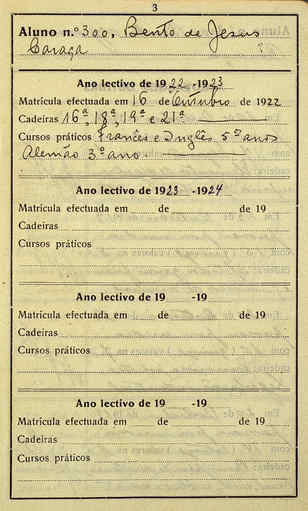 3
Aluno n.º 300, Bento de Jesus
Caraça
Ano lectivo de 1922-1923
Matrícula efectuada em 16 de Outubro de 1922
Cadeiras 16ª, 18ª, 19ª e 21ª
Cursos práticos Francês e Inglês 5ºs anos
Alemão 3º ano.
Ano lectivo de 1923-1924
Matrícula efectuada em de de 19
Cadeiras
Cursos práticos
Ano lectivo de 19 -19
Matrícula efectuada em de de 19
Cadeiras
Cursos práticos
Ano lectivo de 19 -19
Matrícula efectuada em de de 19
Cadeiras
Cursos práticos